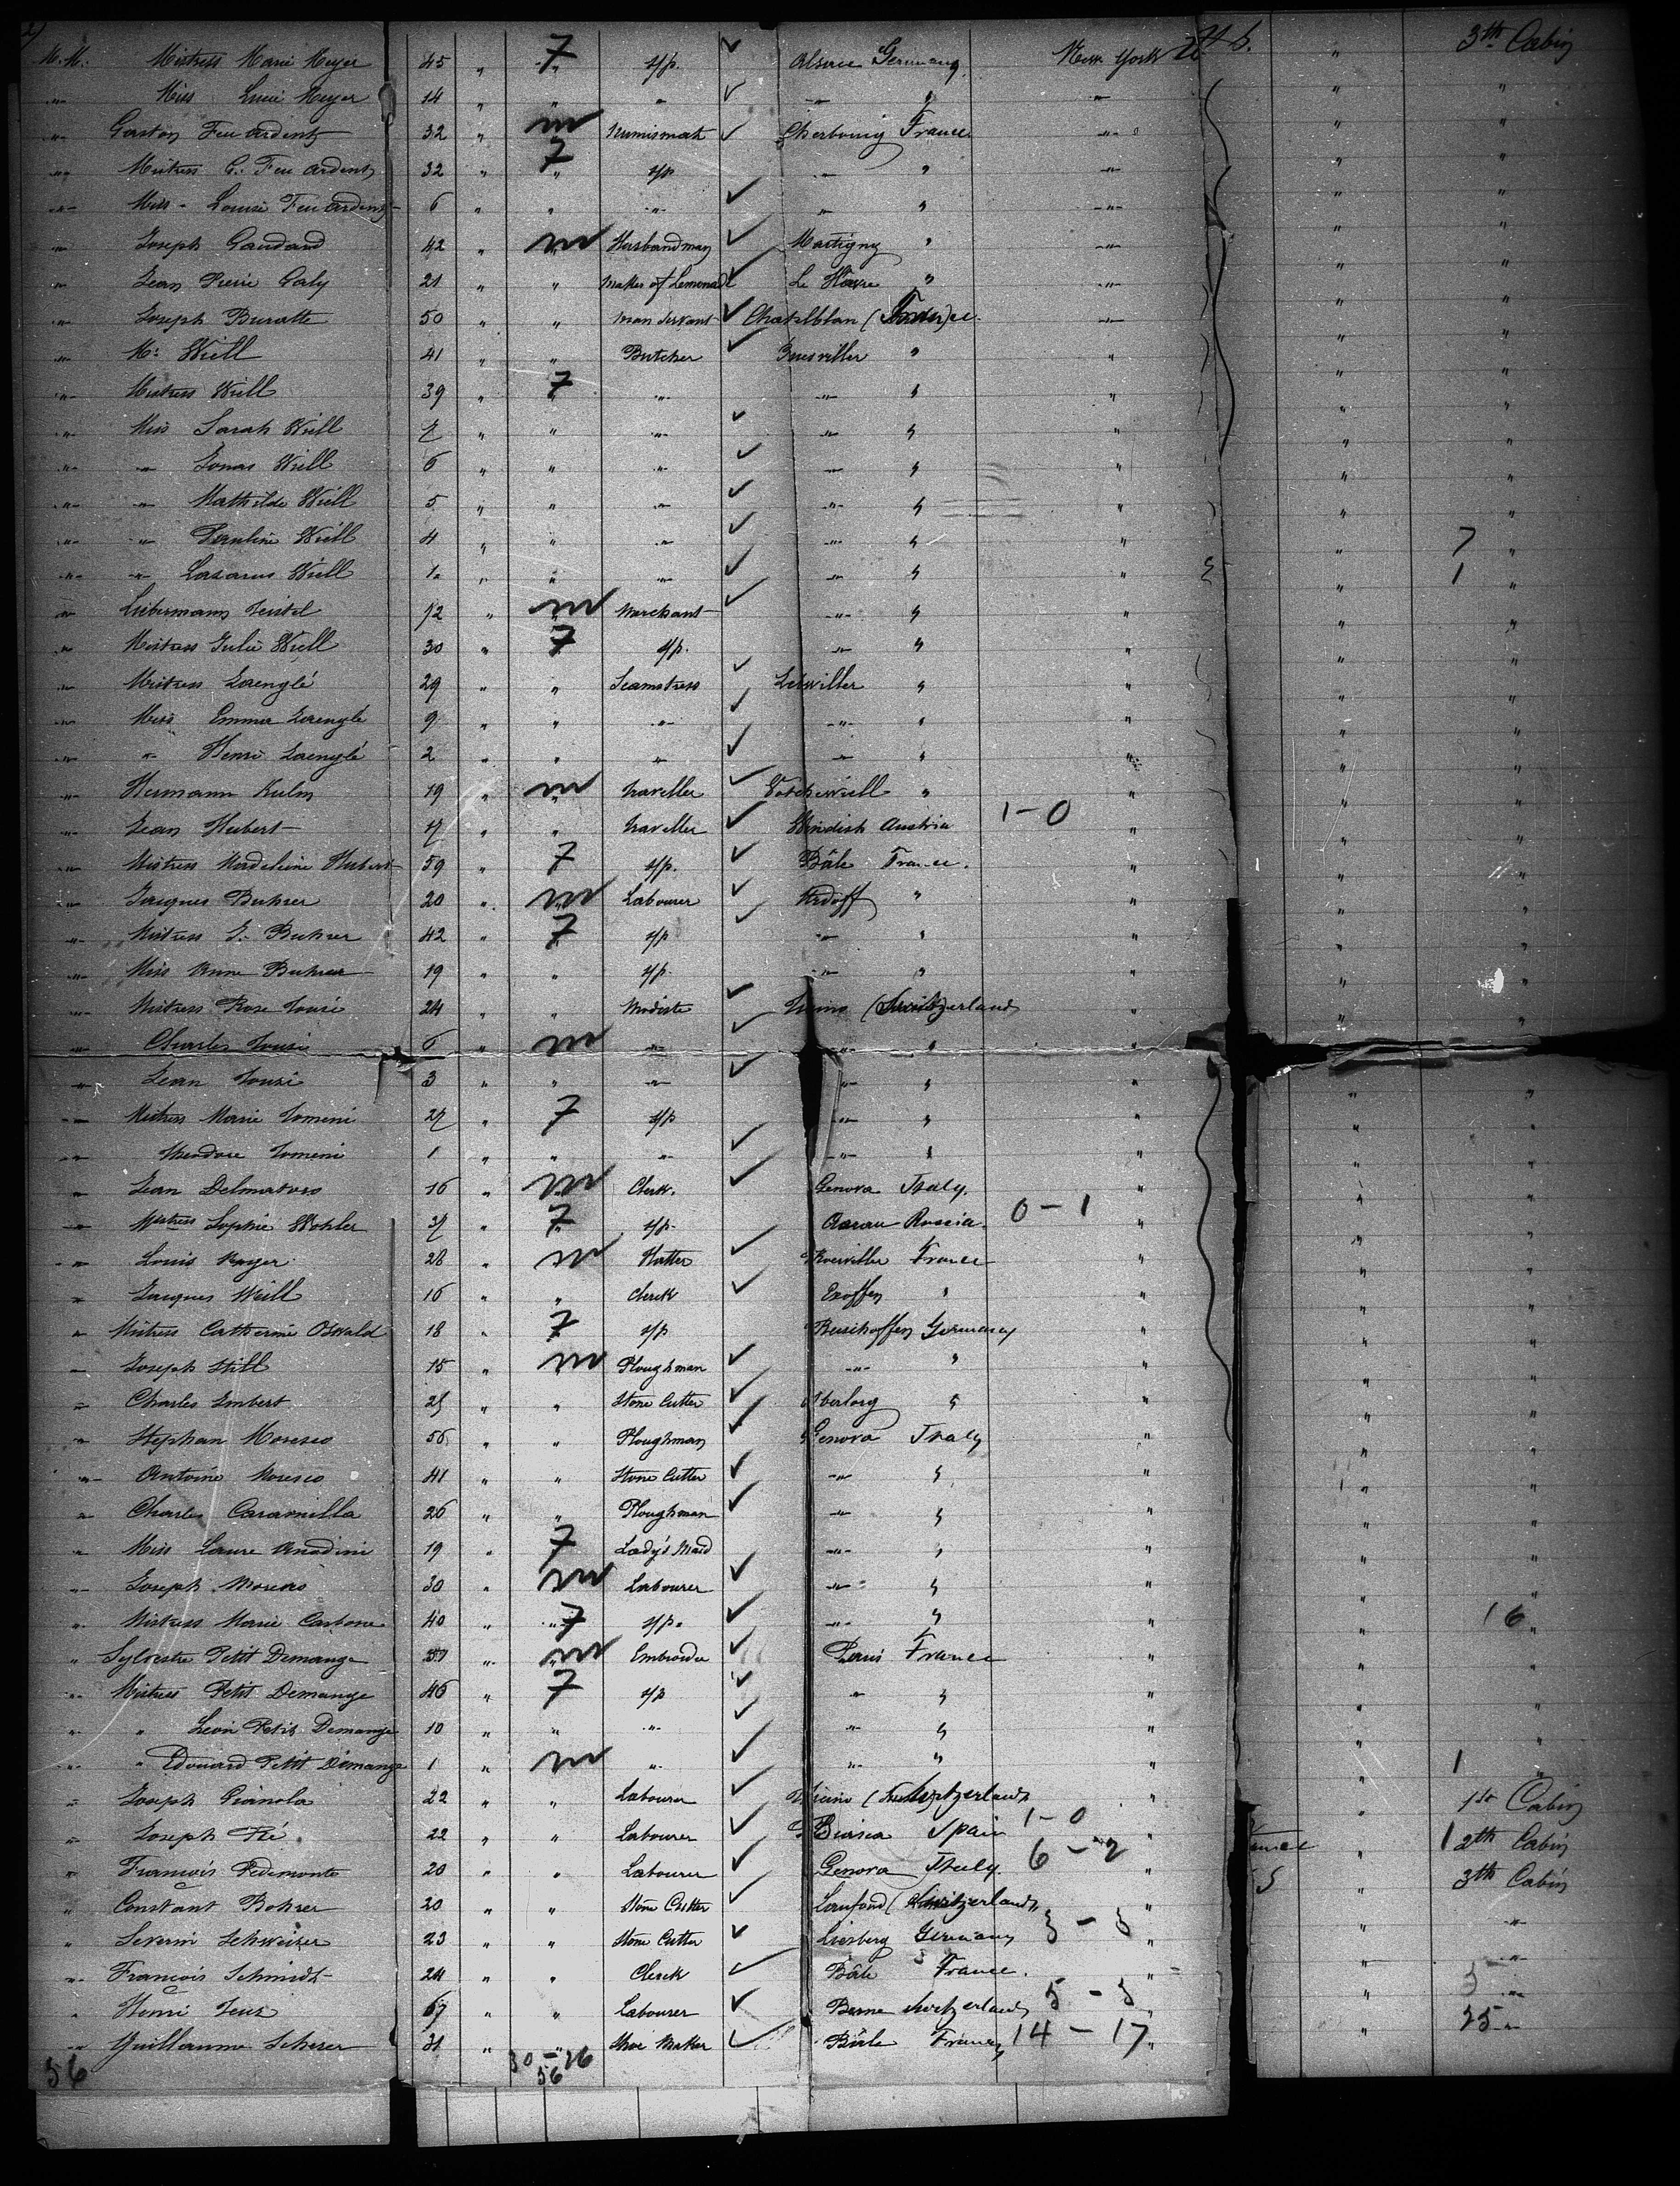 2)
M. M. Mistress Marie Meyer 45 " 7 s/p. ✓ Alsace Germany New York U. S. " 3th Cabin
" Miss Lucie Meyer 14 " " " ✓ " " " " "
" Gaston Feuardent 32 " m Numismat ✓ Cherbourg France " " "
" Mistress G. Feuardent 32 " 7 s/p " " " " "
" Miss Louise Feuardent 6 " " " ✓ " " " " "
" Joseph Gaudard 42 " m Husbandman ✓ Martigny " " " "
" Jean Pierre Galy 21 " " Maker of Lemonade ✓ Le Havre " " " "
" Joseph Buratte 50 " " Man Servant ✓ Chatelblan (France " " "
" Mr. Weill 41 " " Butcher ✓ " " " "
" Mistress Weill 39 " 7 " " " " " "
" Miss Sarah Weill 7 " " " ✓ " " " " "
" " Jonas Weill 6 " " " ✓ " " " " "
" " Mathilde Weill 5 " " " ✓ " " " " "
" " Pauline Weill 4 " " " ✓ " " " " 7 "
" " Lazarus Weill 1 " " " ✓ " " " " 1 "
" Liebermann 12 " m Merchant ✓ " " " " "
" Mistress Julie Weill 30 " 7 s/p. " " " " "
" Mistress Laenglé 29 " " Seamstress ✓ " " " "
" Miss Emma Laenglé 9 " " " ✓ " " " " "
" " Henri Laenglé 2 " " " ✓ " " " " "
" Hermann Kulm 19 " m traveller ✓ " " " "
" Jean Hubert 17 " " traveller ✓ Windish Austria 1-0 " " "
" Mistress Madeleine Hubert 59 " 7 s/p. ✓ Bâle France. " " "
" Jacques Buhrer 20 " m Labourer ✓ " " " "
" Mistress J. Buhrer 42 " 7 s/p ✓ " " " " "
" Miss Anne Buhrer 19 " " s/p. " " " " "
" Mistress Rose 24 " " Modiste ✓ (Switzerland " " "
" Charles 6 " m " ✓ " " " " "
" Jean 3 " " " ✓ " " " " "
" Mistress Marie Tomeni 27 " 7 s/p " " " " "
" Theodore Tomeni 1 " " " ✓ " " " " "
" Jean 16 " m Clerk. ✓ Genova Italy. " " "
" Mistress Sophie Wohler 37 " 7 s/p. Aarau Russia. 0-1 " " "
" Louis Mayer 28 " m Hatter ✓ France " " "
" Jacques Weill 16 " " Clerck ✓ " " " "
" Mistress Catherine Oswald 18 " 7 s/p Germany " " "
" Joseph Still 15 " m Ploughman ✓ " " " " "
" Charles Imbert 25 " " Stone Cutter ✓ " " " "
" Stephan Moresco 56 " " Ploughman ✓ Genova Italy " " "
" Antoine Moresco 41 " " Stone Cutter ✓ " " " " "
" Charles Caramilla 26 " " Ploughman ✓ " " " " "
" Miss Laure Anadini 19 " 7 Lady's Maid " " " " "
" Joseph 30 " m Labourer ✓ " " " " "
" Mistress Marie Carbone 40 " 7 s/p. ✓ " " " " 16 "
" Sylvestre Petit Demange 37 " m ✓ Paris France " " "
" Mistress Petit Demange 46 " 7 s/p ✓ " " " " "
" " Léon Petit Demange 10 " " " ✓ " " " " "
" " Edouard Petit Demange 1 " m " ✓ " " " " 1 "
" Joseph Gianola 22 " " Labourer ✓ Ticino (Switzerland " " 1st Cabin
" Joseph Ré 22 " " Labourer ✓ Biasca Spain 1-0 " " 1 2th Cabin
" François Pedemonte 20 " " Labourer ✓ Genova Italy 6-2 " S " 3th Cabin
" Constant Bohrer 20 " " Stone Cutter ✓ (Switzerland " " "
" Severin Schweizer 23 " " Stone Cutter ✓ Liesberg Germany 3-3 " " "
" François Schmidt 24 " " Clerck ✓ Bâle France. " " 3 "
" Henri 67 " " Labourer ✓ Berne Switzerland 5-3 " " 25 "
" Guillaume Scherer 31 " " Shoe Maker ✓ Bâle France 14-17 "
56 30-26
56